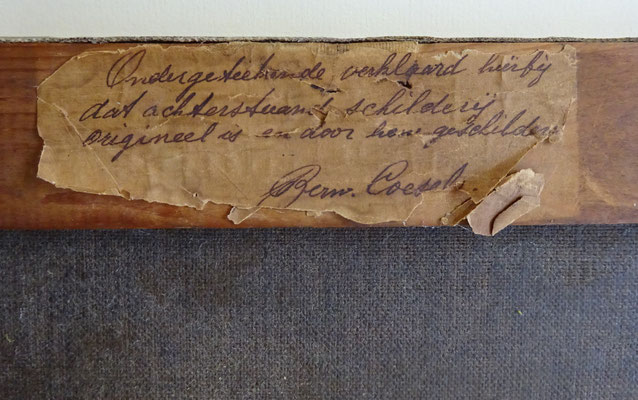 Ondergeteekende verklaard hierbij
dat achterstaand schilderij
origineel is en door hem geschilderd
Bern.